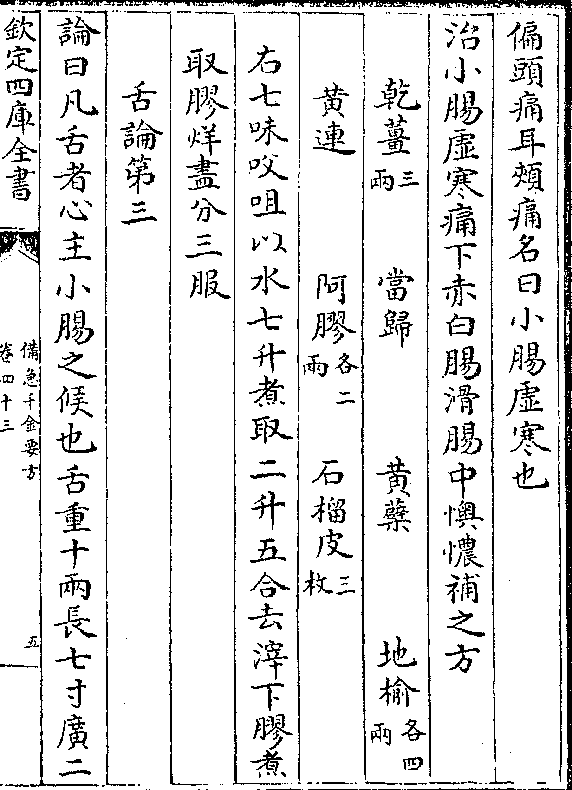 偏頭痛耳頰痛名曰小腸虛寒也
治小腸虛寒痛下赤白腸滑腸中懊憹補之方
乾薑三兩 當歸 黃蘗 地榆各四兩
黃連 阿膠各二兩 石榴皮三枚
右七味㕮咀以水七升煮取二升五合去滓下膠煮
取膠烊盡分三服
舌論第三
論曰凡舌者心主小腸之候也舌重十兩長七寸廣二
欽定四庫全書
備急千金要方
卷四十三
五